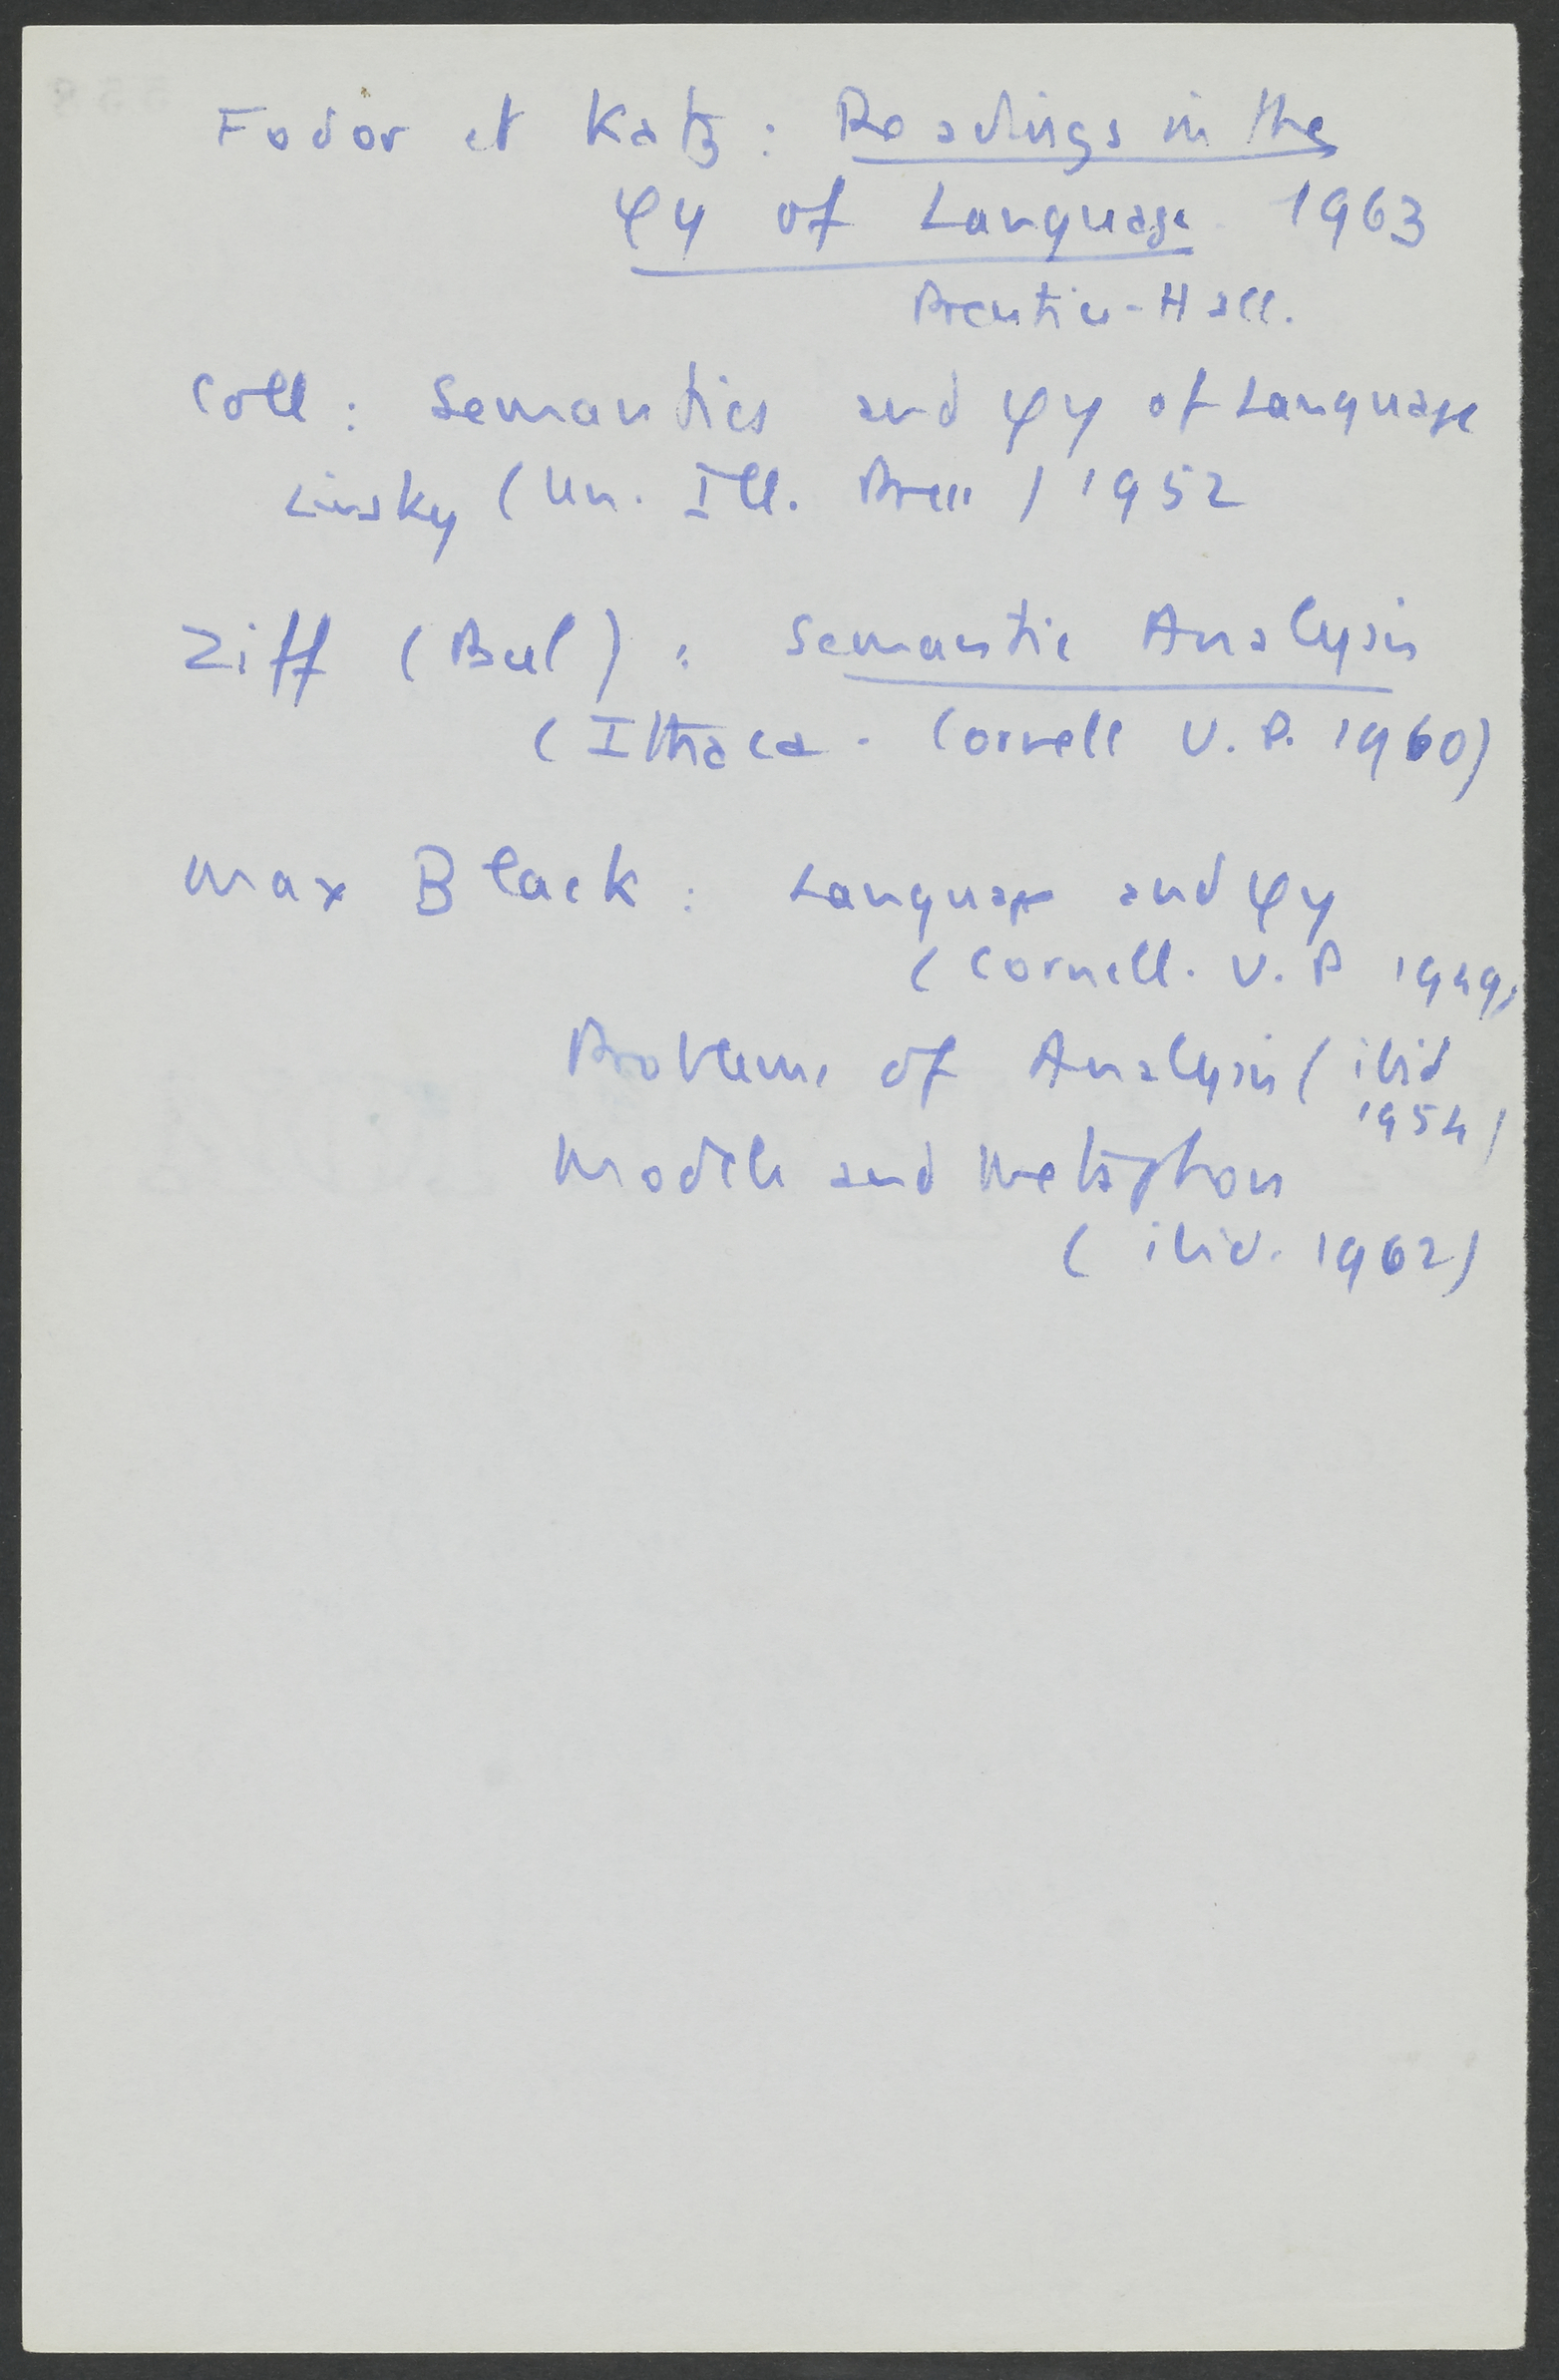 Fodor et Katz : Readings in the
φy of Language. 1963
Prentice-Hall.
Coll : Semantics and φy of Language
Linsky (Un. Ill. Press) 1952
Ziff (Paul) : Semantic Analysis
(Ithaca. Cornell U. P. 1960)
Max Black : Language and φy
(Cornell. U. P 1949)
Problems of Analysis (ibid
1954)
Models and Metaphors
(ibid. 1962)